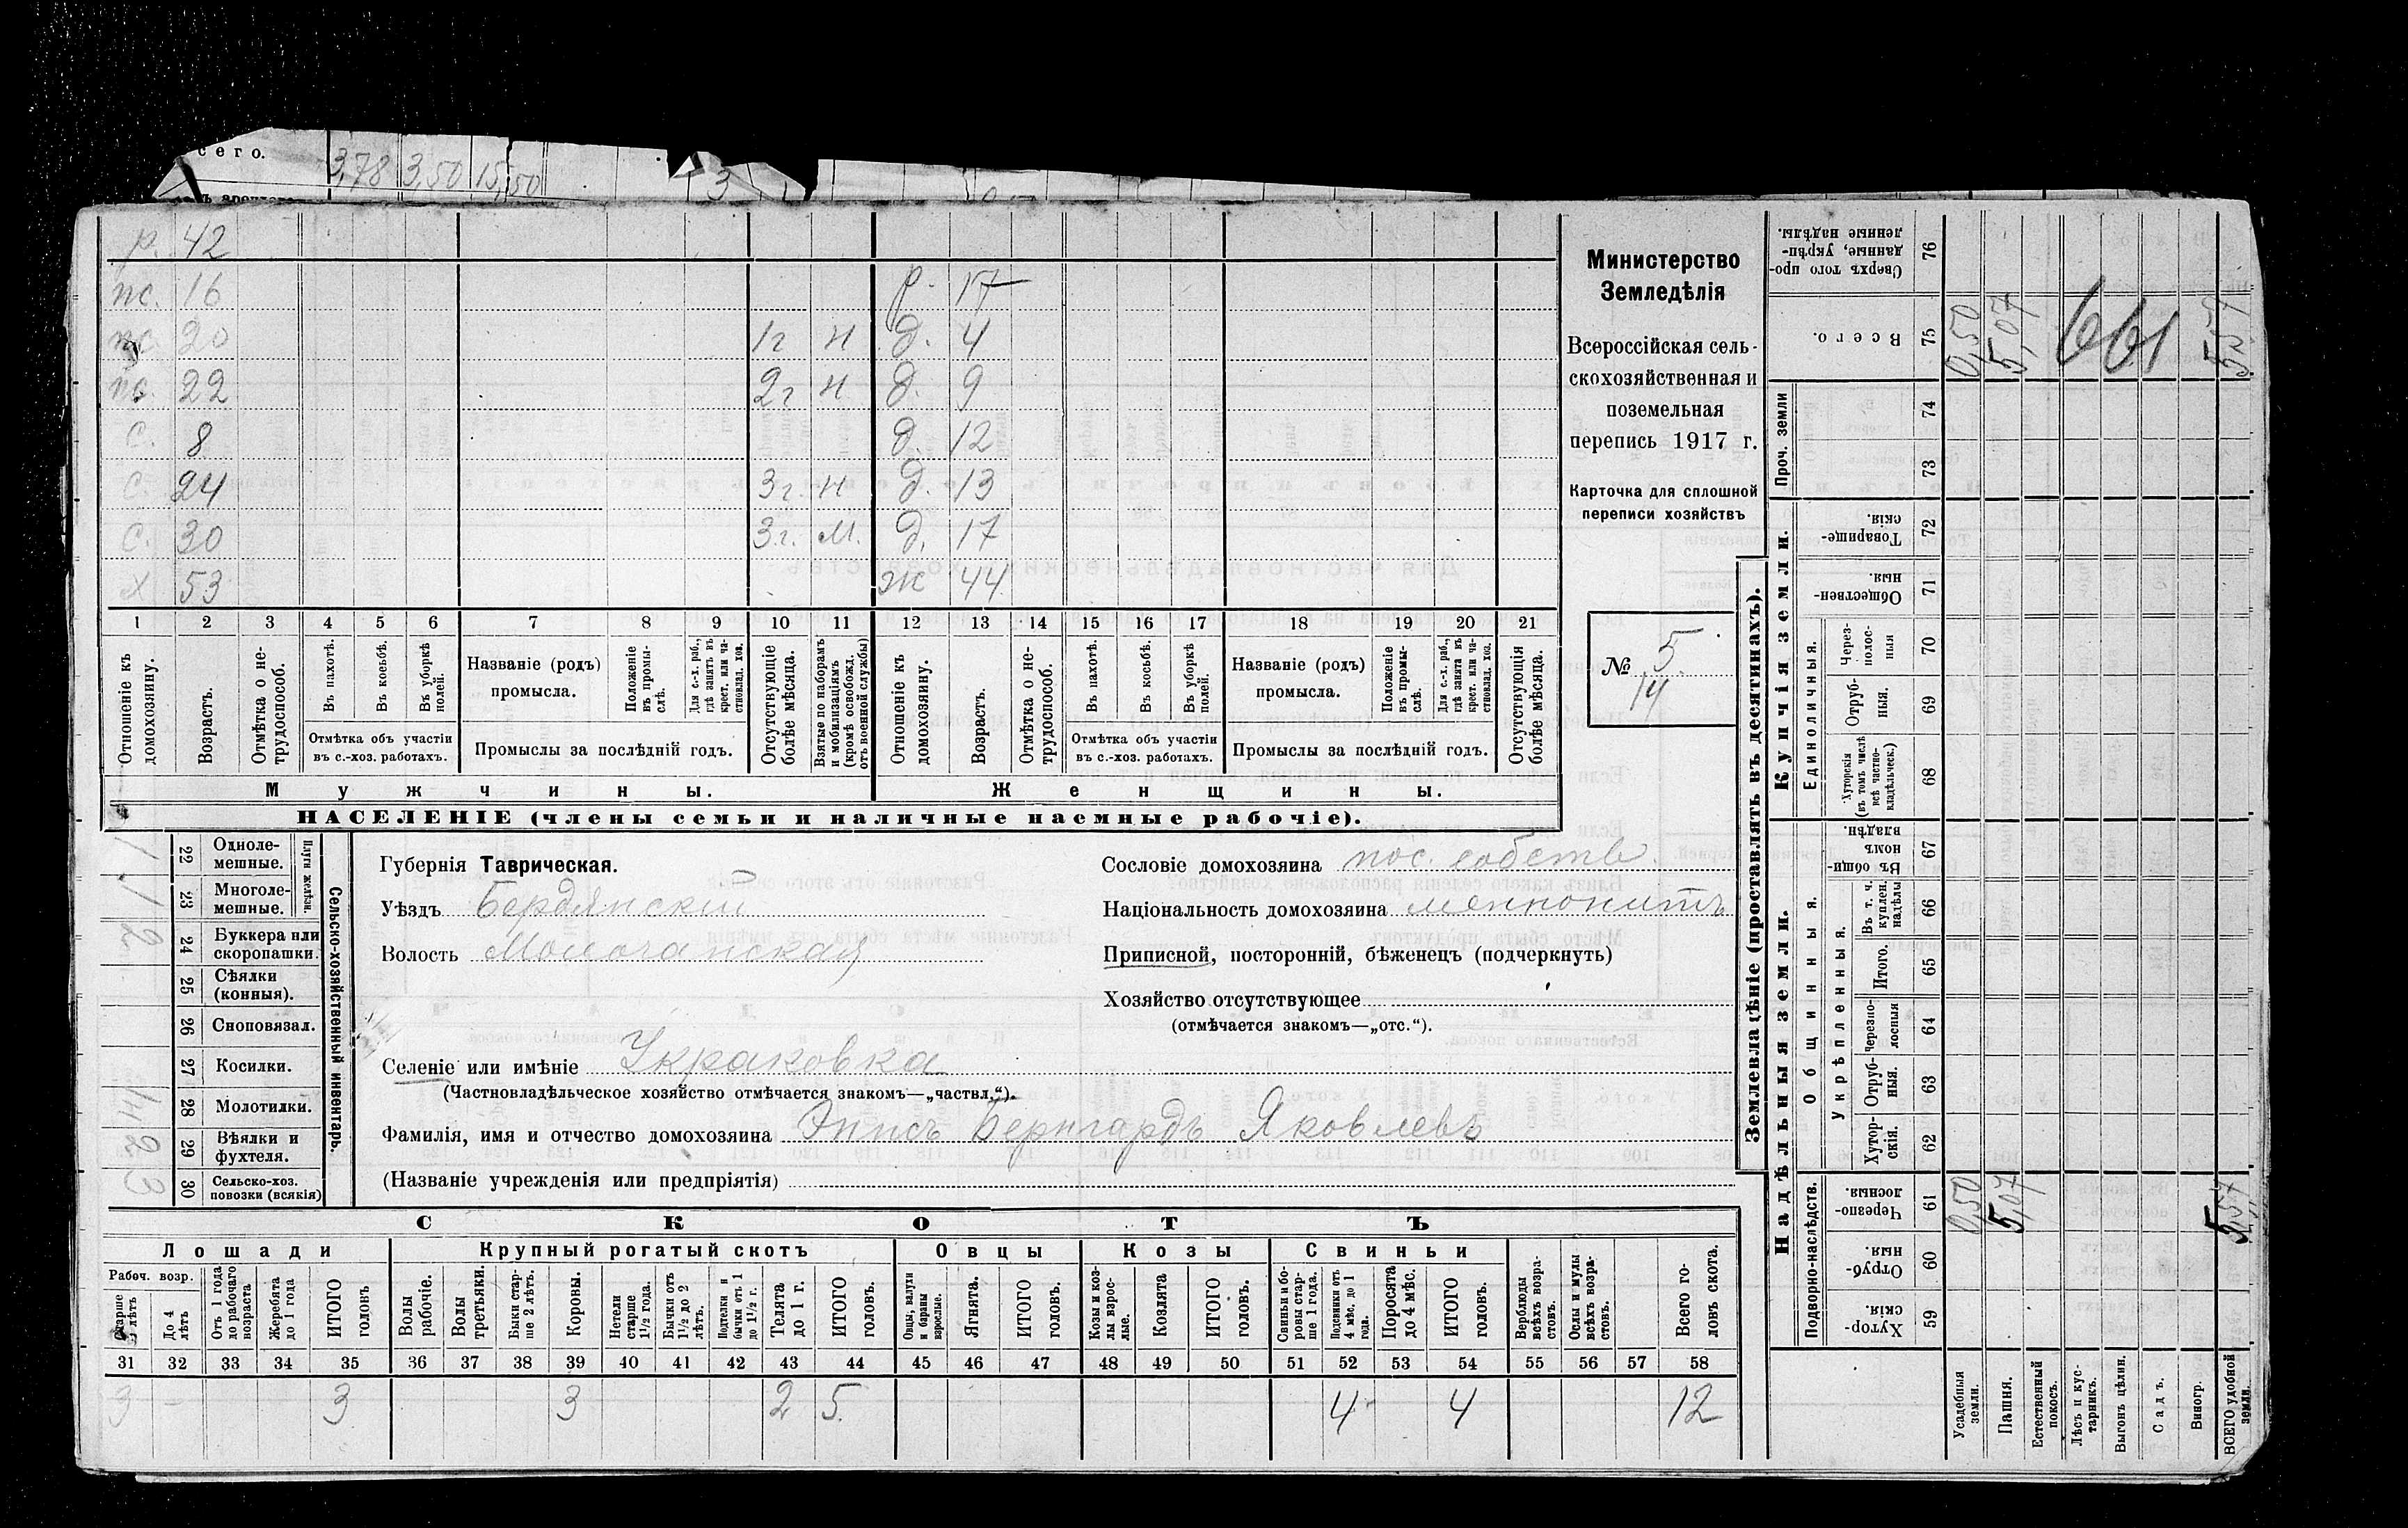 сего. 3,78 3,50 15,50 3
р. 42
пс. 16 р. 17
20 1г н д. 4
22 2г н д. 9
с. 8 д. 12
с. 24 3г. н д. 13
с. 30 3г. м. д. 17
х 53 ж 44
1 2 3 4 5 6 7 8 9 10 11 12 13 14 15 16 17 18 19 20 21
Отношеніе къ домохозяину.
Возрастъ.
Отмѣтка о не-трудоспособ.
Въ пахотѣ.
Въ косьбѣ.
Въ уборкѣ полей.
Отмѣтка объ участіи
въ с.-хоз. работахъ.
Названіе (родъ)
промысла.
Положеніе въ промы-слѣ.
Для с.-х. раб., гдѣ занятъ въ крест. или ча-стновлад. хоз.
Промыслы за послѣдній годъ.
Отсутствующіе болѣе мѣсяца.
Взятые по наборамъ и мобилизаціямъ (кромѣ освобожд. отъ военной службы)
Отношеніе къ домохозяину.
Возрастъ.
Отмѣтка о не-трудоспособ.
Въ пахотѣ.
Въ косьбѣ.
Въ уборкѣ полей.
Отмѣтка объ участіи
въ с.-хоз. работахъ.
Названіе (родъ)
промысла.
Положеніе въ промы-слѣ.
Для с.-х. раб., гдѣ занята въ крест. или ча-стновлад. хоз.
Промыслы за послѣдній годъ.
Отсутствующія болѣе мѣсяца.
Мужчины. Женщины.
НАСЕЛЕНІЕ (члены семьи и наличные наемные рабочіе).
Министерство
Земледѣлія
Всероссійская сель-
скохозяйственная и
поземельная
перепись 1917 г.
Карточка для сплошной
переписи хозяйствъ
№ 5.
14
Сельско-хозяйственный инвентарь.
Плуги желѣзн.
22 Одноле-мешные. 1
23 Многоле-мешные. 1
24 Буккера или скоропашки. 2
25 Сѣялки (конныя).
26 Сноповязал.
27 Косилки.
28 Молотилки.
29 Вѣялки и фухтеля.
30 Сельско-хоз. повозки (всякія) 3
Губернія Таврическая.
Уѣздъ Бердянскій
Волость Молочанская
Селеніе или имѣніе
(Частновладѣльческое хозяйство отмѣчается знакомъ—„частвл.“).
Фамилія, имя и отчество домохозяина Эппъ Бернгардъ Яковлевъ
(Названіе учрежденія или предпріятія)
Сословіе домохозяина пос. собств.
Національность домохозяина меннонитъ
Приписной, посторонній, бѣженецъ (подчеркнуть)
Хозяйство отсутствующее
(отмѣчается знакомъ—„отс.“).
СКОТЪ
Лошади Крупный рогатый скотъ Овцы Козы Свиньи
Рабоч. возр.
Старше лѣтъ
До 4 лѣтъ
Отъ 1 года до рабочаго возраста
Жеребята до 1 года
ИТОГО головъ
Волы рабочіе.
Волы третьяки.
Быки стар-ше 2 лѣтъ.
Коровы.
Нетели старше 1½ года.
Бычки отъ 1½ до 2 лѣтъ.
Подтелки и бычки отъ 1 до 1½ г.
Телята до 1 г.
ИТОГО головъ.
Овцы, валухи и бараны взрослые.
Ягнята.
ИТОГО головъ.
Козы и коз-лы взрос-лые.
Козлята
ИТОГО головъ.
Свиньи и бо-ровы стар-ше 1 года.
Подсвинки отъ 4 мѣс. до 1 года.
Поросята до 4 мѣс.
ИТОГО головъ.
Верблюды всѣхъ возра-стовъ.
Ослы и мулы всѣхъ возра-стовъ.
Всего го-ловъ скота.
31 32 33 34 35 36 37 38 39 40 41 42 43 44 45 46 47 48 49 50 51 52 53 54 55 56 57 58
3 - 3 3 2 5. 4 4 12
Землевладѣніе (проставлять въ десятинахъ).
Купчія земли.
Надѣльныя земли.
76 Сверхъ того про-данные, укрѣп-ленные надѣлы.
75 Всего. 0,50 5,07 661 5,57
Проч. земли
74
73
72 Товарище-скія.
71 Обществен-ныя.
Единоличныя.
70 Через-полос-ныя
69 Отруб-ныя.
68 Хуторскія (въ томъ числѣ всѣ частно-владѣльческ.)
Общинныя.
67 Въ общин-номъ владѣн.
Укрѣпленныя.
66 Въ т. ч. куплен. надѣлы
65 Итого.
64 Черезпо-лосныя
63 Отруб-ныя.
62 Хутор-скія.
Подворно-наслѣдств.
61 Черезпо-лосныя. 0,50 5,07 5,57
60 Отруб-ныя.
59 Хутор-скія.
Усадебныя земли.
Пашня.
Естественный покосъ.
Лѣсъ и кус-тарникъ.
Выгонъ цѣлин.
Садъ.
Виногр.
ВСЕГО удобной земли.